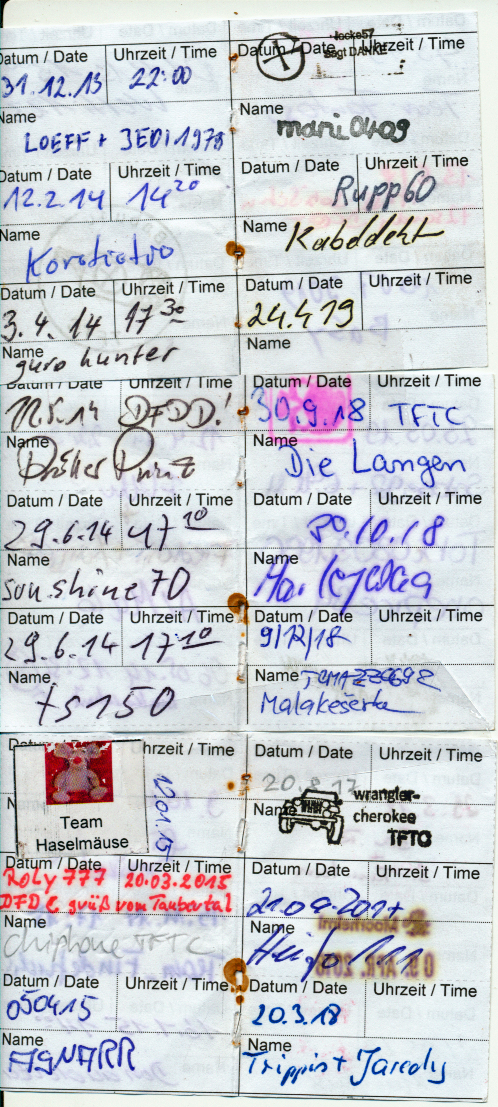 Datum / Date Uhrzeit / Time
31.12.13 22:00
Name
LOEFF + JEDI1978
Datum / Date Uhrzeit / Time
12.2.14 14 20
Name
Datum / Date Uhrzeit / Time
3.4.14 17 30
Name
guro hunter
Datum / Date Uhrzeit / Time
locke57
sagt DANKE
Name
mani0409
Datum / Date Uhrzeit / Time
Rupp60
Name
Datum / Date Uhrzeit / Time
24.4.19
Name
Datum / Date Uhrzeit / Time
11.5.14 DFDD!
Name
Datum / Date Uhrzeit / Time
29.6.14 17 10
Name
sunshine70
Datum / Date Uhrzeit / Time
29.6.14 17 10
Name
ts150
Datum / Date Uhrzeit / Time
30.9.18 TFTC
Name
Die Langen
Datum / Date Uhrzeit / Time
30.10.18
Name
Datum / Date Uhrzeit / Time
9/12/18
Name
Datum / Date Uhrzeit / Time
10.01.15
Team
Haselmäuse
Datum / Date Uhrzeit / Time
Roly 777 20.03.2015
DFDC grüß vom Taubertal
Name
chiphone TFTC
Datum / Date Uhrzeit / Time
050415
Name
AGNARR
Datum / Date Uhrzeit / Time
20.8.17
wrangler-
cherokee
TFTC
Name
Datum / Date Uhrzeit / Time
Name
Datum / Date Uhrzeit / Time
20.3.18
Name
Trippin + Jaredy